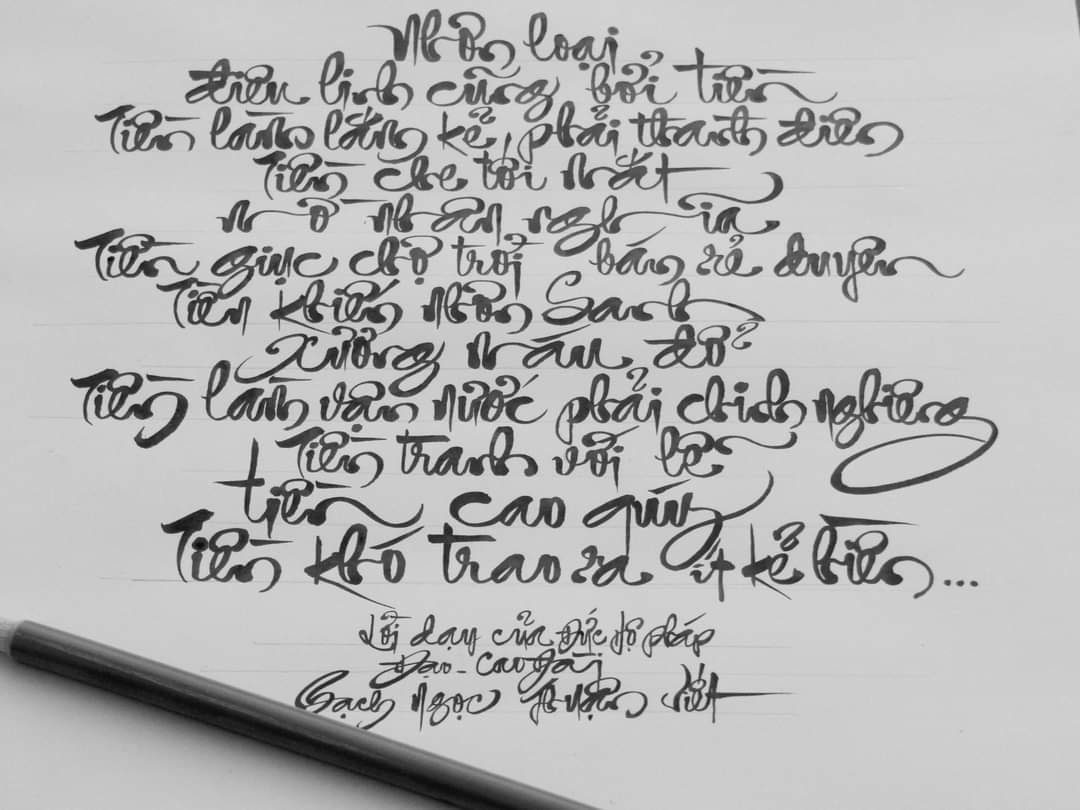 Nhơn loại
điêu linh cũng bởi tiền
Tiền làm lắm kẻ phải thành điên
Tiền che tối mắt
mờ nhân nghĩa
Tiền giục chợ trời bán rẻ duyên
Tiền khiến nhơn sanh
xương máu đổ
Tiền làm vận nước phải chinh nghiêng
Tiền tranh với lẽ
tiền cao quý
Tiền khó trao ra ít kẻ hiền...
Lời dạy của Đức Hộ pháp
Đạo - Cao Đài
Bạch Ngọc Thuận Viết